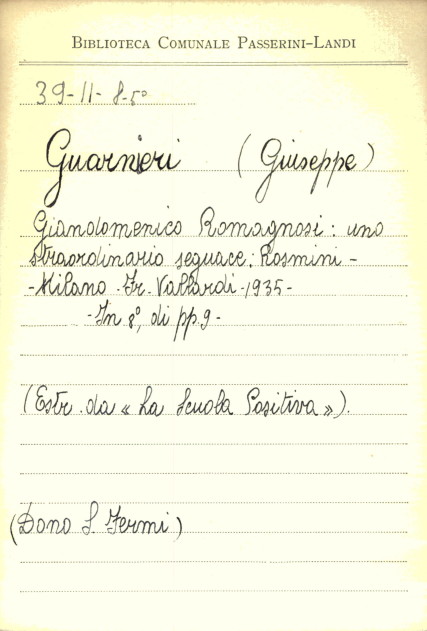 BIBLIOTECA COMUNALE PASSERINI-LANDI
39-11-8-5°
Guarnieri (Giuseppe)
Giandomenico Romagnosi: uno
straordinario seguace: Rosmini -
-Milano. Fr. Vallardi-1935-
-In 8°, di pp. 9-
(Estr. da « La Scuola Positiva »).
(Dono S. Fermi)